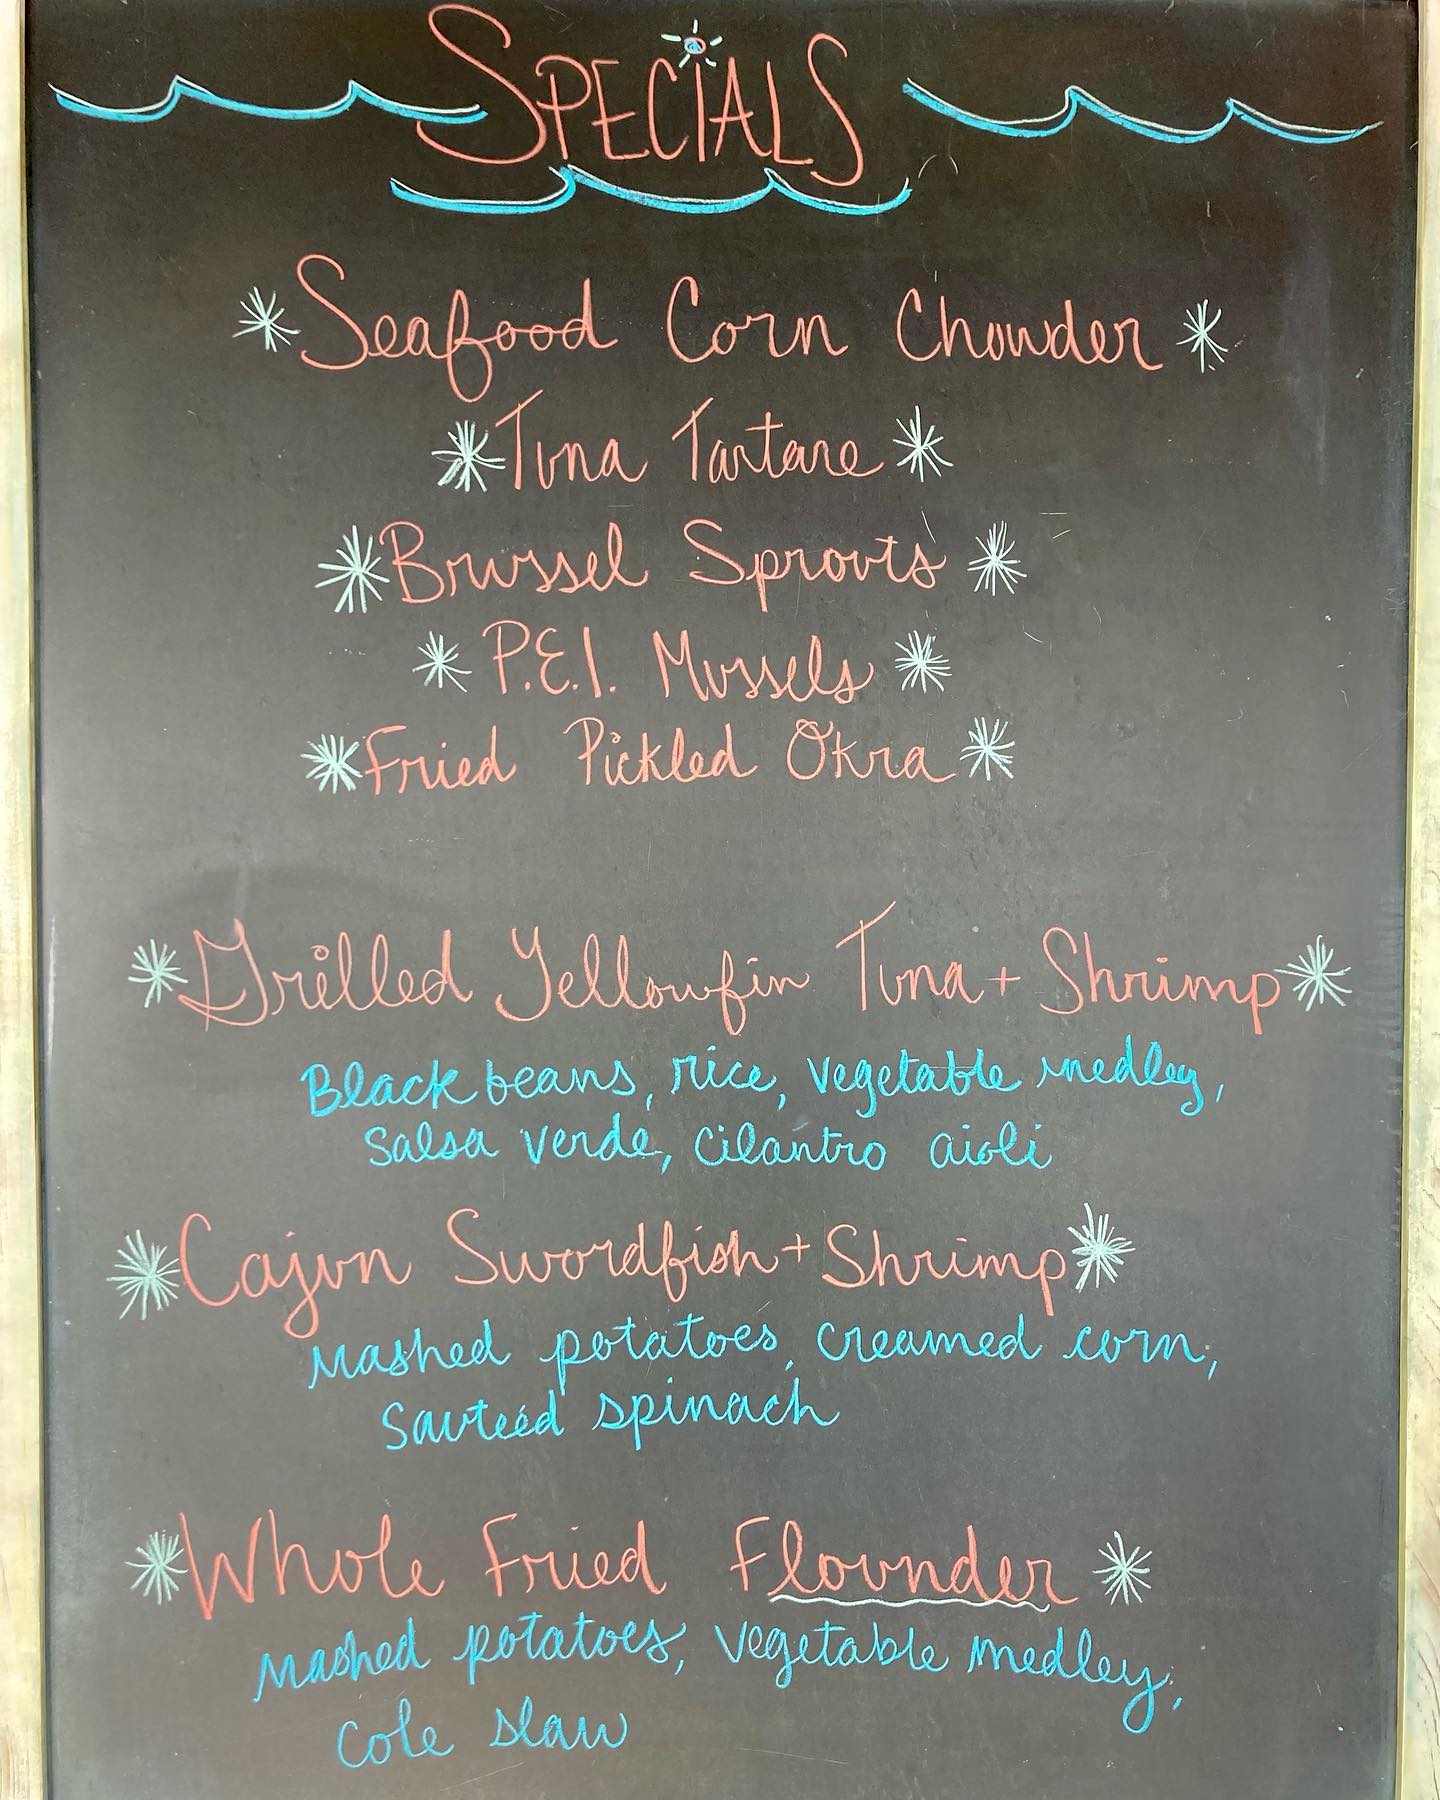 SPECiALS
Seafood Corn Chowder
Tuna Tartare
Brussel Sprouts
P.E.I. Mussels
Fried Pickled Okra
Grilled Yellowfin Tuna + Shrimp
Black beans, rice, vegetable medley,
Salsa verde, cilantro aioli
Cajun Swordfish + Shrimp
Mashed potatoes, creamed corn,
Sauteéd spinach
Whole Fried Flounder
Mashed potatoes, vegetable medley,
Cole slaw